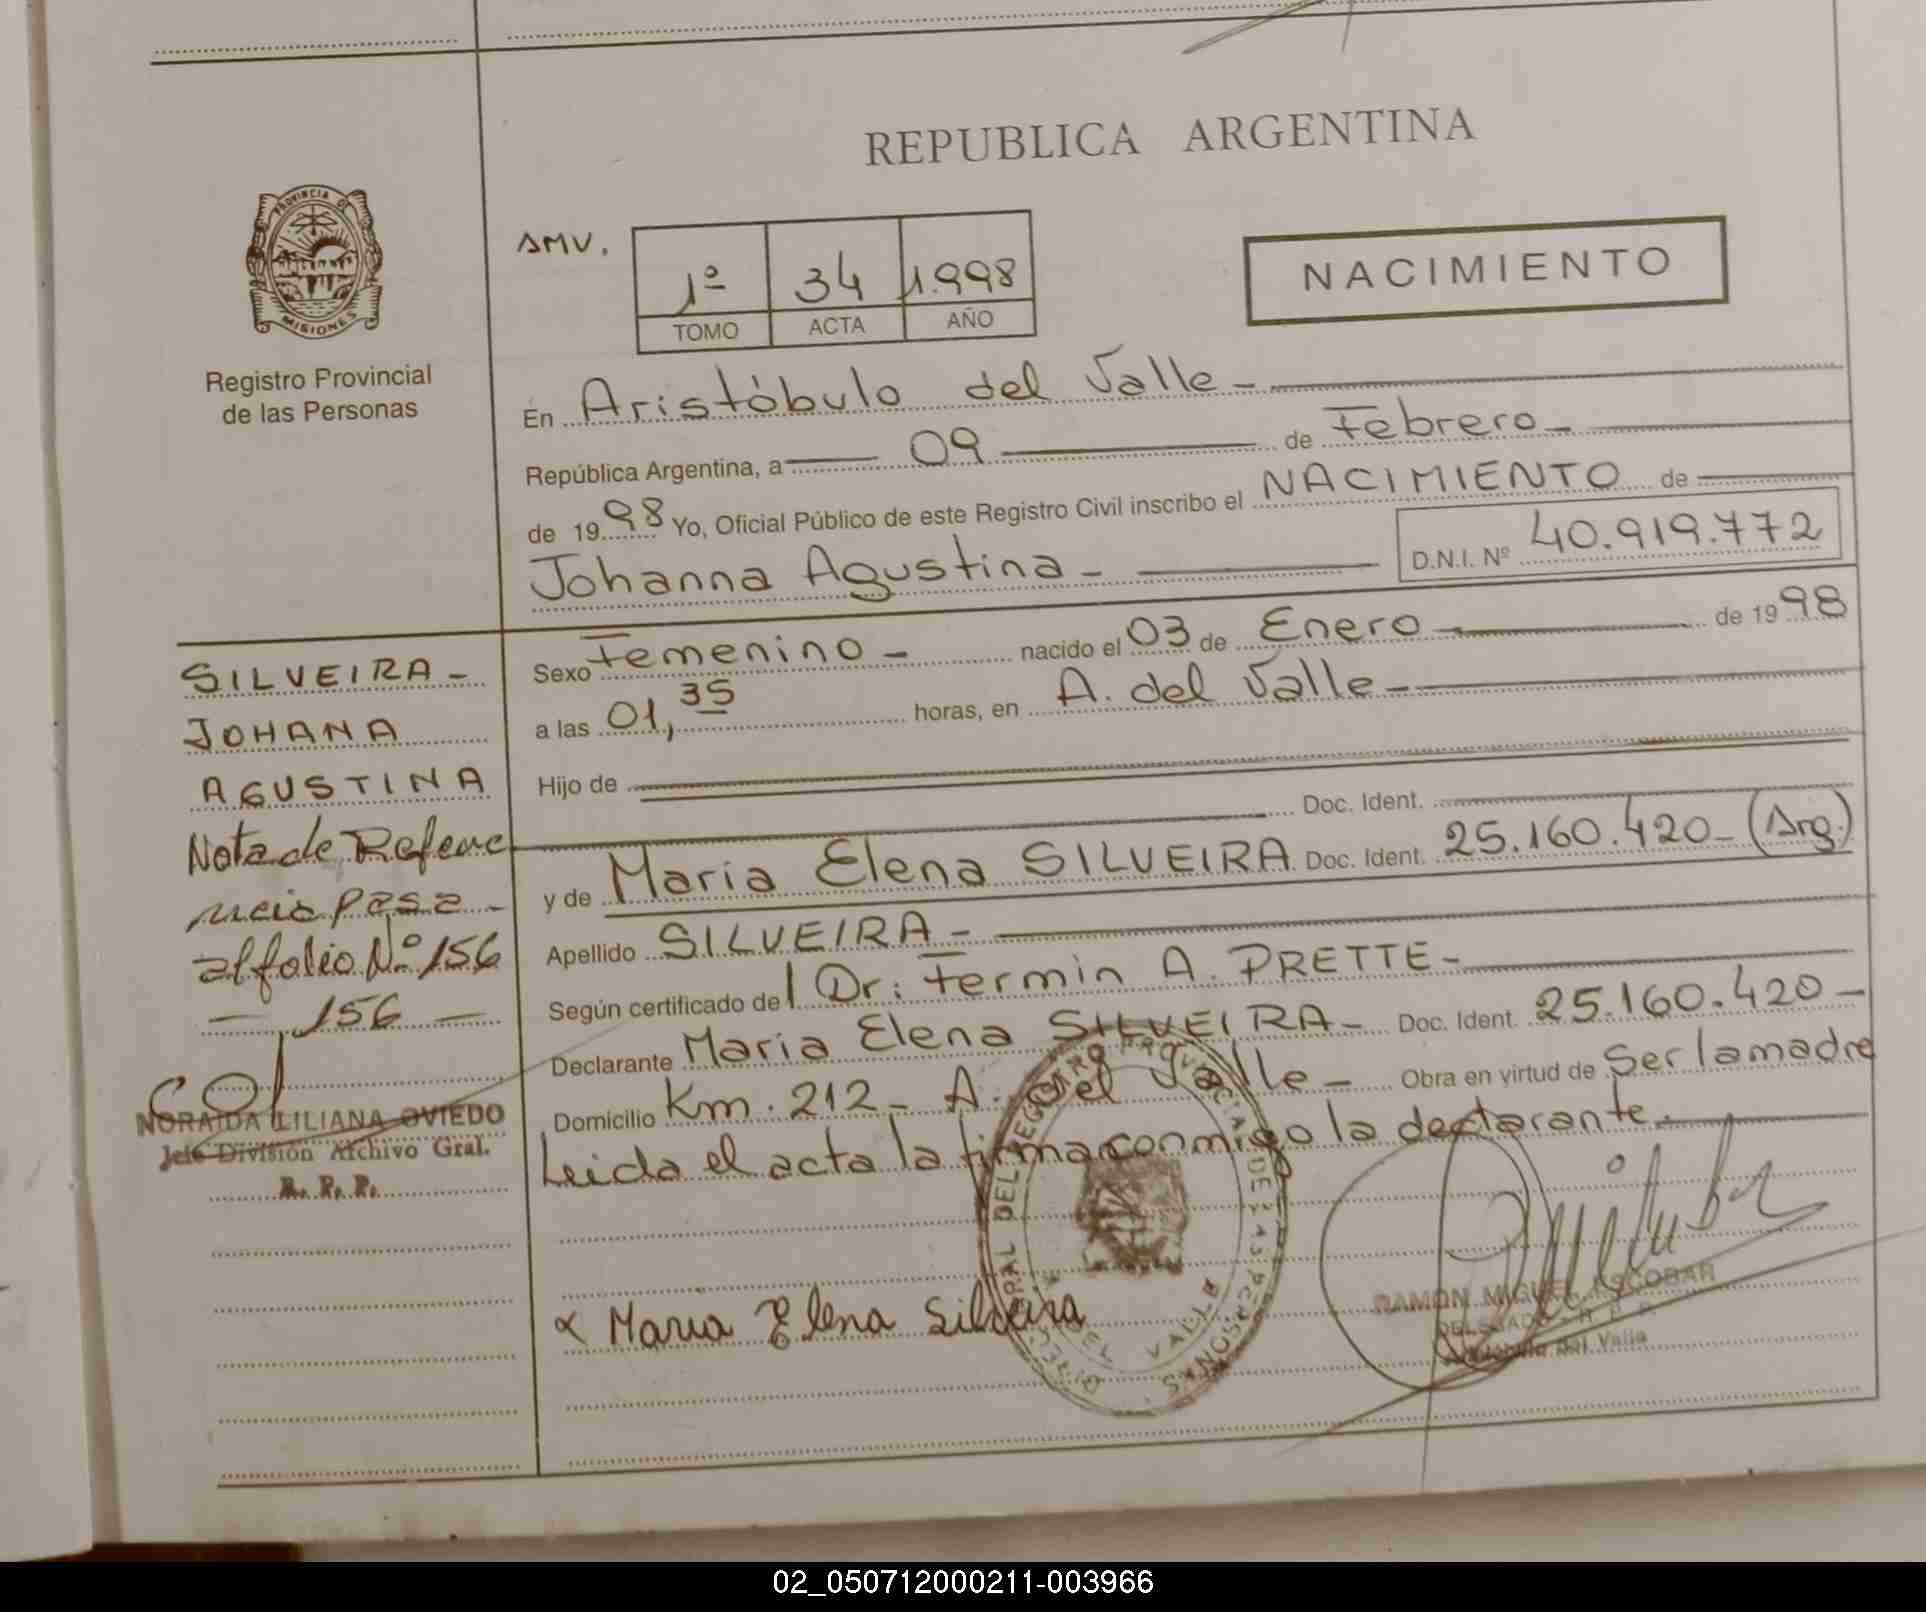 REPUBLICA ARGENTINA
PROVINCIA DE
MISIONES
Registro Provincial
de las Personas
SMV.
1º 34 1.998
TOMO ACTA AÑO
NACIMIENTO
En Aristóbulo del Valle -
República Argentina, a 09 de Febrero -
de 1998 Yo, Oficial Público de este Registro Civil inscribo el NACIMIENTO de
Johanna Agustina - D.N.I. Nº 40.919.772
SILVEIRA -
JOHANA
AGUSTINA
Nota de Referen
pasa -
al folio Nº 156
- 156 -
NORAIDA LILIANA OVIEDO
Jefe División Archivo Gral.
R. P. P.
Sexo Femenino - nacido el 03 de Enero - de 1998
a las 01,35 horas, en A. del Valle -
Hijo de
Doc. Ident.
y de Maria Elena SILVEIRA Doc. Ident. 25.160.420 - (Arg.)
Apellido SILVEIRA -
Según certificado del Dr: Fermin A. PRETTE -
Declarante Maria Elena SILVEIRA - Doc. Ident. 25.160.420 -
Domicilio Km. 212 - A. del Valle - Obra en virtud de Ser la madre
Leida el acta la firma conmigo la declarante.
Maria Elena Silveira
RAMON MIGUEL ESCOBAR
DELEGADO - R. P. P.
del Valle
02_050712000211-003966